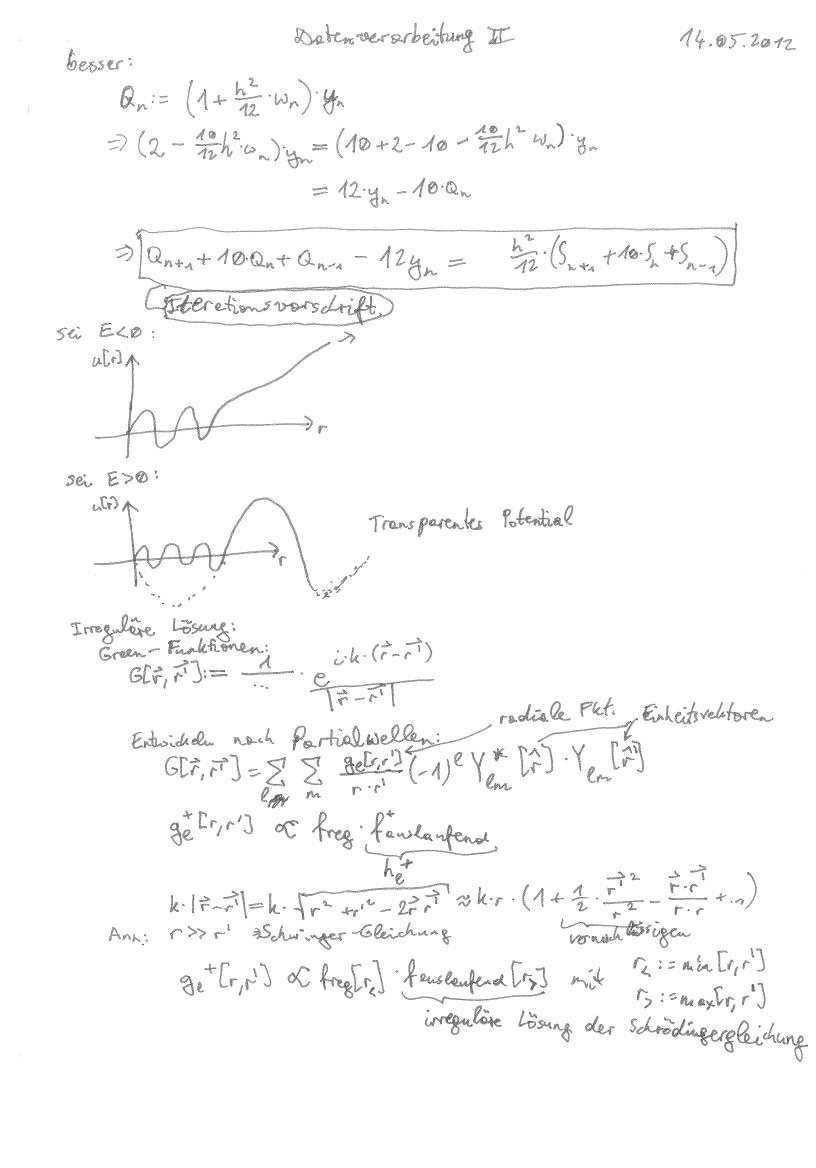 Datenverarbeitung II 14.05.2012
besser:
Qₙ := (1 + h²/12 · wₙ) · yₙ
⇒ (2 − 10/12 h² · wₙ) · yₙ = (10 + 2 − 10 − 10/12 h² wₙ) · yₙ
= 12·yₙ − 10·Qₙ
⇒ Qₙ₊₁ + 10·Qₙ + Qₙ₋₁ − 12yₙ = h²/12 · (Sₙ₊₁ + 10·Sₙ + Sₙ₋₁)
Iterationsvorschrift.
sei E<0:
u[r]
r
sei E>0:
u[r]
r
Transparentes Potential
Irreguläre Lösung:
Green-Funktionen:
G[r⃗, r⃗'] := 1/... · e^(i·k·(r⃗−r⃗'))/|r⃗−r⃗'|
radiale Fkt. Einheitsvektoren
Entwickeln nach Partialwellen:
G[r⃗, r⃗'] = Σₗ Σₘ gₑ[r,r']/(r·r') (−1)^l Y*ₗₘ[r̂] · Yₗₘ[r̂']
gₑ⁺[r,r'] ∝ freg · f⁺auslaufend
hₑ⁺
k·|r⃗−r⃗'| = k·√(r² + r'² − 2r⃗ r⃗') ≈ k·r · (1 + 1/2 · r⃗'²/r² − r⃗·r⃗'/(r·r) + ...)
Ann: r >> r' Schwinger-Gleichung vernachlässigen
gₑ⁺[r,r'] ∝ freg[r<] · fauslaufend[r>] mit r< := min[r,r']
r> := max[r,r']
irreguläre Lösung der Schrödingergleichung